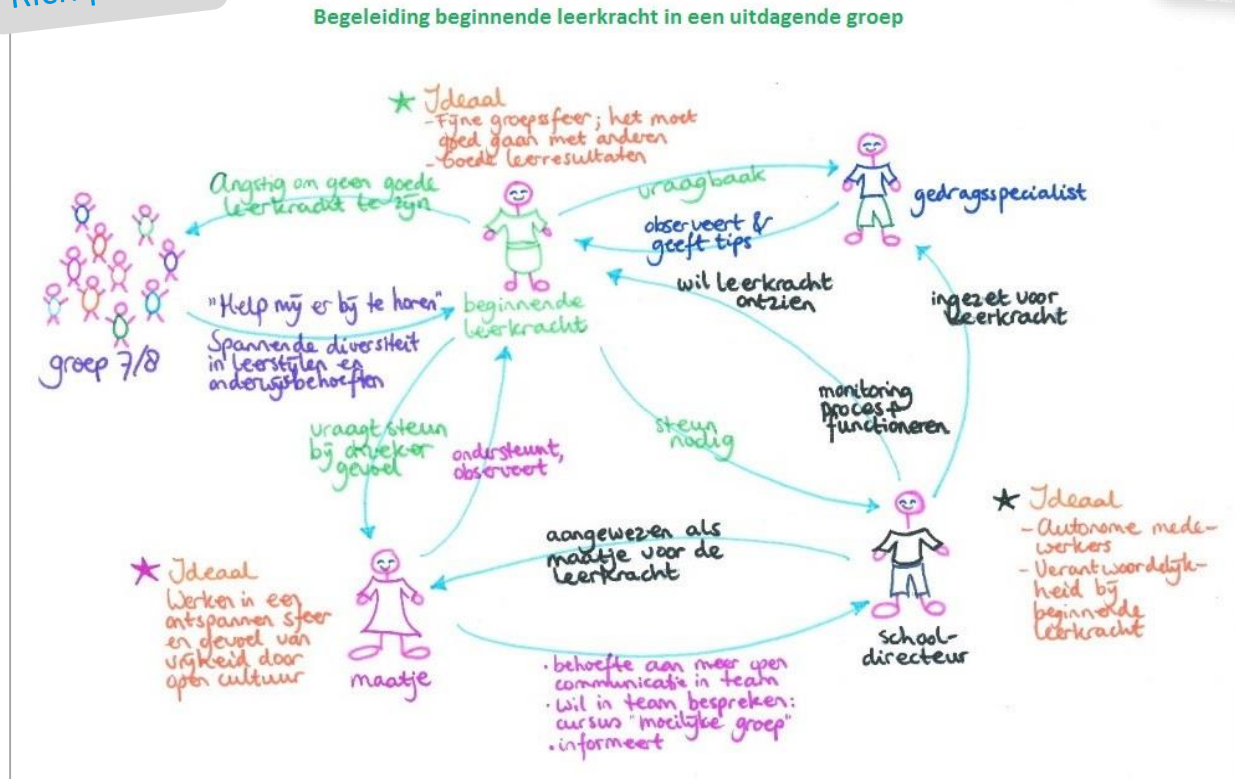 Begeleiding beginnende leerkracht in een uitdagende groep
Ideaal
- Fijne groepssfeer; het moet
goed gaan met anderen
- Goede leerresultaten
Angstig om geen goede
leerkracht te zijn
vraagbaak
gedragsspecialist
observeert &
geeft tips
wil leerkracht
ontzien
ingezet voor
leerkracht
"Help mij er bij te horen"
beginnende
leerkracht
groep 7/8
Spannende diversiteit
in leerstijlen en
onderwijsbehoeften
monitoring
proces +
functioneren
vraagt steun
bij onzeker
gevoel
ondersteunt,
observeert
steun
nodig
Ideaal
- Autonome mede-
werkers
- Verantwoordelijk-
heid bij
beginnende
leerkracht
aangewezen als
maatje voor de
leerkracht
Ideaal
Werken in een
ontspannen sfeer
en gevoel van
vrijheid door
open cultuur
maatje
school-
directeur
· behoefte aan meer open
communicatie in team
· wil in team bespreken:
cursus "moeilijke groep"
· informeert